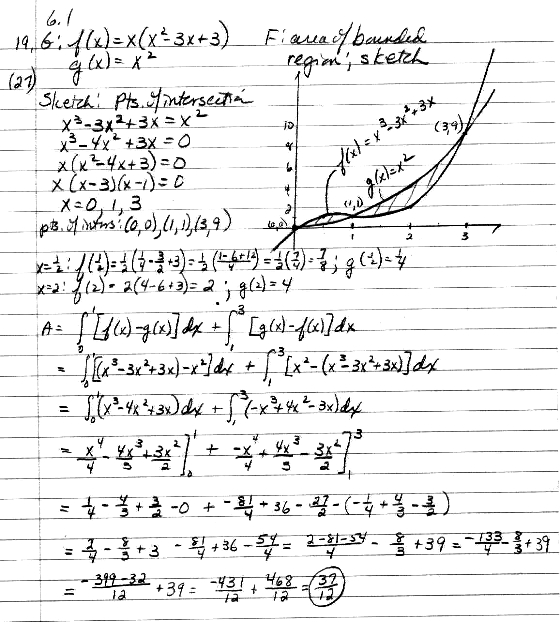 6.1
19. G: f(x) = x(x²-3x+3) F: area of bounded
(27) g(x) = x² region; sketch
Sketch: Pts. of intersection
x³-3x²+3x = x²
x³-4x²+3x = 0
x(x²-4x+3) = 0
x(x-3)(x-1) = 0
x = 0, 1, 3
pts. of inters: (0,0), (1,1), (3,9)
10
8
6
4
2
1 2 3
f(x) = x³-3x²+3x
g(x) = x²
(3,9)
(1,1)
(0,0)
x=½: f(½) = ½(¼ - 3/2 + 3) = ½((1-6+12)/4) = ½(7/4) = 7/8; g(½) = ¼
x=2: f(2) = 2(4-6+3) = 2; g(2) = 4
A = ∫₀¹ [f(x)-g(x)]dx + ∫₁³ [g(x)-f(x)]dx
= ∫₀¹ [(x³-3x²+3x)-x²]dx + ∫₁³ [x²-(x³-3x²+3x)]dx
= ∫₀¹ (x³-4x²+3x)dx + ∫₁³ (-x³+4x²-3x)dx
= x⁴/4 - 4x³/3 + 3x²/2 ]₀¹ + -x⁴/4 + 4x³/3 - 3x²/2 ]₁³
= 1/4 - 4/3 + 3/2 - 0 + -81/4 + 36 - 27/2 - (-1/4 + 4/3 - 3/2)
= 2/4 - 8/3 + 3 - 81/4 + 36 - 54/4 = (2-81-54)/4 - 8/3 + 39 = -133/4 - 8/3 + 39
= (-399-32)/12 + 39 = -431/12 + 468/12 = 37/12